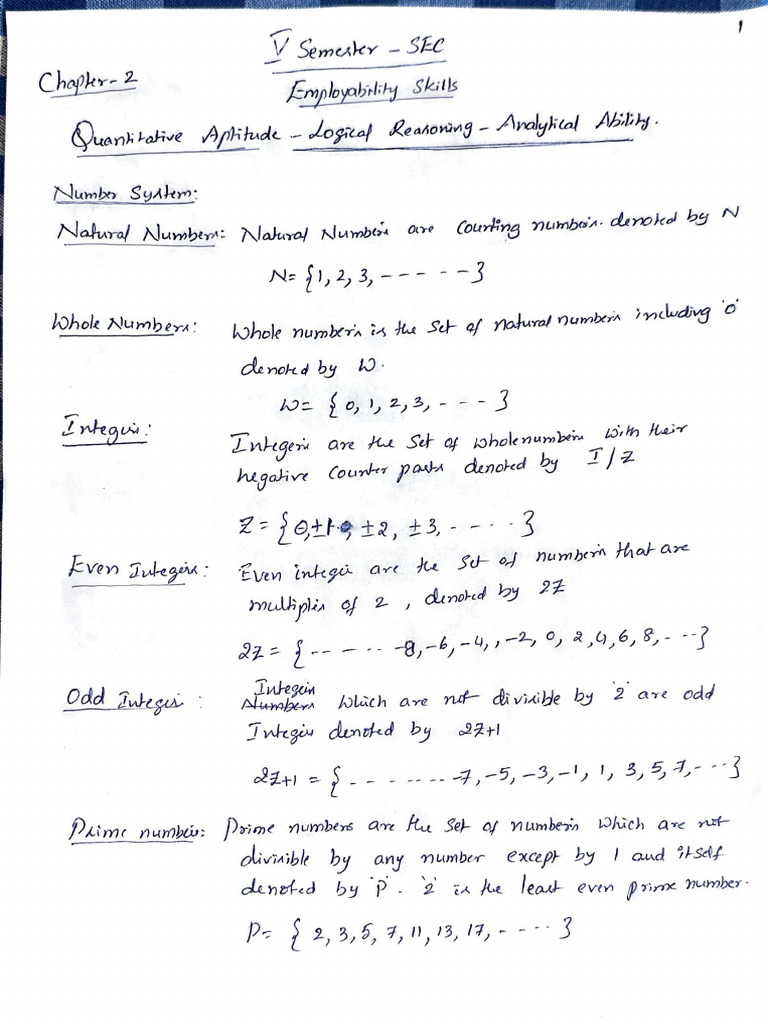 1
V Semester - SEC
Chapter-2
Employability Skills
Quantitative Aptitude - Logical Reasoning - Analytical Ability.
Number System:
Natural Numbers: Natural Numbers are Counting numbers. denoted by N
N= {1, 2, 3, ------}
Whole Numbers: Whole numbers is the set of natural numbers including '0'
denoted by W.
W= {0, 1, 2, 3, - - - }
Integers: Integers are the set of whole numbers with their
negative counter parts denoted by I/Z
Z = {0, ±1, ±2, ±3, - - - - }
Even Integers: Even integer are the set of numbers that are
multiples of 2, denoted by 2Z
2Z = { -- - -- -8, -6, -4, , -2, 0, 2, 4, 6, 8, - --}
Odd Integers: Integers Numbers which are not divisible by '2' are odd
Integers denoted by 2Z+1
2Z+1 = { - - - - ---- -7, -5, -3, -1, 1, 3, 5, 7, - ---}
Prime numbers: Prime numbers are the set of numbers which are not
divisible by any number except by 1 and itself
denoted by 'P'. '2' is the least even prime number.
P= {2, 3, 5, 7, 11, 13, 17, - - ---}